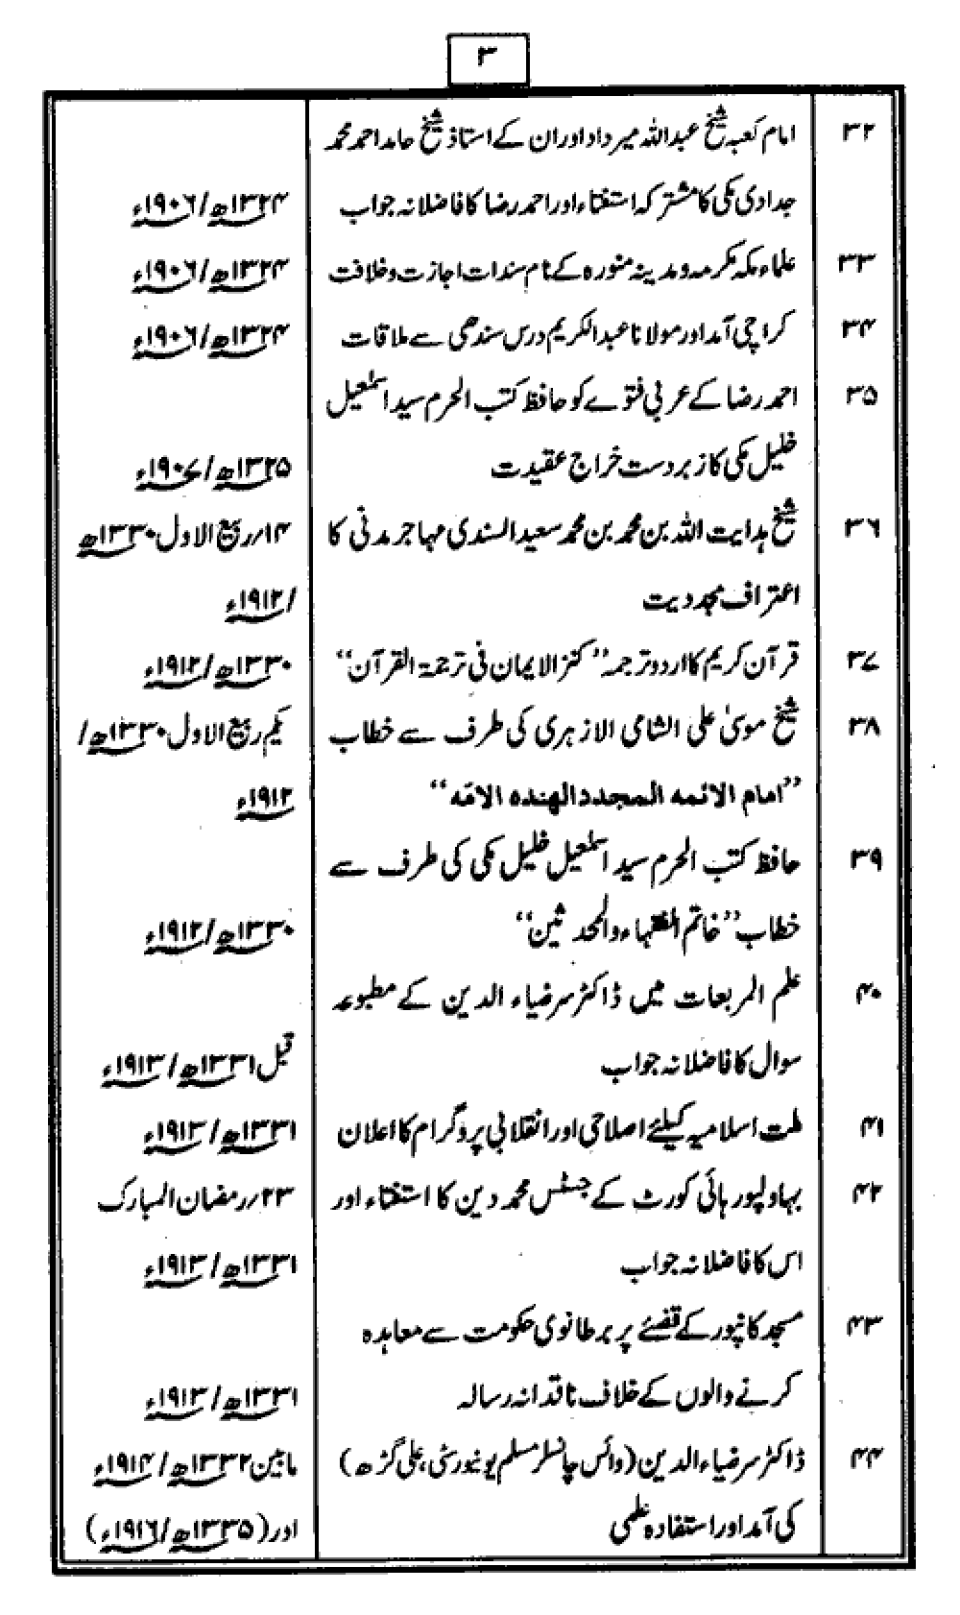 ۳
۳۲ امام کعبہ شیخ عبداللہ میرداد اور ان کے استاذ شیخ حامد احمد محمد
جدادی مکی کا مشترکہ استفتاء اور احمد رضا کا فاضلانہ جواب ۱۳۲۴ھ/۱۹۰۶ء
۳۳ علماء مکہ مکرمہ و مدینہ منورہ کے نام سندات اجازت و خلافت ۱۳۲۴ھ/۱۹۰۶ء
۳۴ کراچی آمد اور مولانا عبدالکریم درس سندھی سے ملاقات ۱۳۲۴ھ/۱۹۰۶ء
۳۵ احمد رضا کے عربی فتوے کو حافظ کتب الحرم سید اسمٰعیل
خلیل مکی کا زبردست خراج عقیدت ۱۳۲۵ھ/۱۹۰۷ء
۳۶ شیخ ہدایت اللہ بن محمد بن محمد سعید السندی مہاجر مدنی کا ۱۴/ربیع الاول ۱۳۳۰ھ
اعتراف مجددیت /۱۹۱۲ء
۳۷ قرآن کریم کا اردو ترجمہ ”کنز الایمان فی ترجمۃ القرآن“ ۱۳۳۰ھ/۱۹۱۲ء
۳۸ شیخ موسیٰ علی الشامی الازہری کی طرف سے خطاب یکم ربیع الاول ۱۳۳۰ھ/
”امام الائمہ المجدد الھندہ الامّہ“ ۱۹۱۲ء
۳۹ حافظ کتب الحرم سید اسمٰعیل خلیل مکی کی طرف سے
خطاب ”خاتم الفقہاء والمحدثین“ ۱۳۳۰ھ/۱۹۱۲ء
۴۰ علم المربعات میں ڈاکٹر سر ضیاء الدین کے مطبوعہ
سوال کا فاضلانہ جواب قبل ۱۳۳۱ھ/۱۹۱۳ء
۴۱ ملت اسلامیہ کیلئے اصلاحی اور انقلابی پروگرام کا اعلان ۱۳۳۱ھ/۱۹۱۳ء
۴۲ بہاولپور ہائی کورٹ کے جسٹس محمد دین کا استفتاء اور ۲۳/رمضان المبارک
اس کا فاضلانہ جواب ۱۳۳۱ھ/۱۹۱۳ء
۴۳ مسجد کانپور کے قضئے پر برطانوی حکومت سے معاہدہ
کرنے والوں کے خلاف ناقدانہ رسالہ ۱۳۳۱ھ/۱۹۱۳ء
۴۴ ڈاکٹر سر ضیاء الدین (وائس چانسلر مسلم یونیورسٹی، علی گڑھ) مابین ۱۳۳۲ھ/۱۹۱۴ء
کی آمد اور استفادہ علمی اور (۱۳۳۵ھ/۱۹۱۶ء)